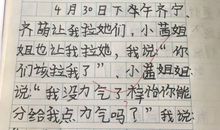 4月30日下午齐宁、
齐萌让我拉她们，小茜姐
姐也让我拉她，我说“你
们拉我了”、小茜姐姐
说“我没力气了你能
分给我点力气吗了”我说：